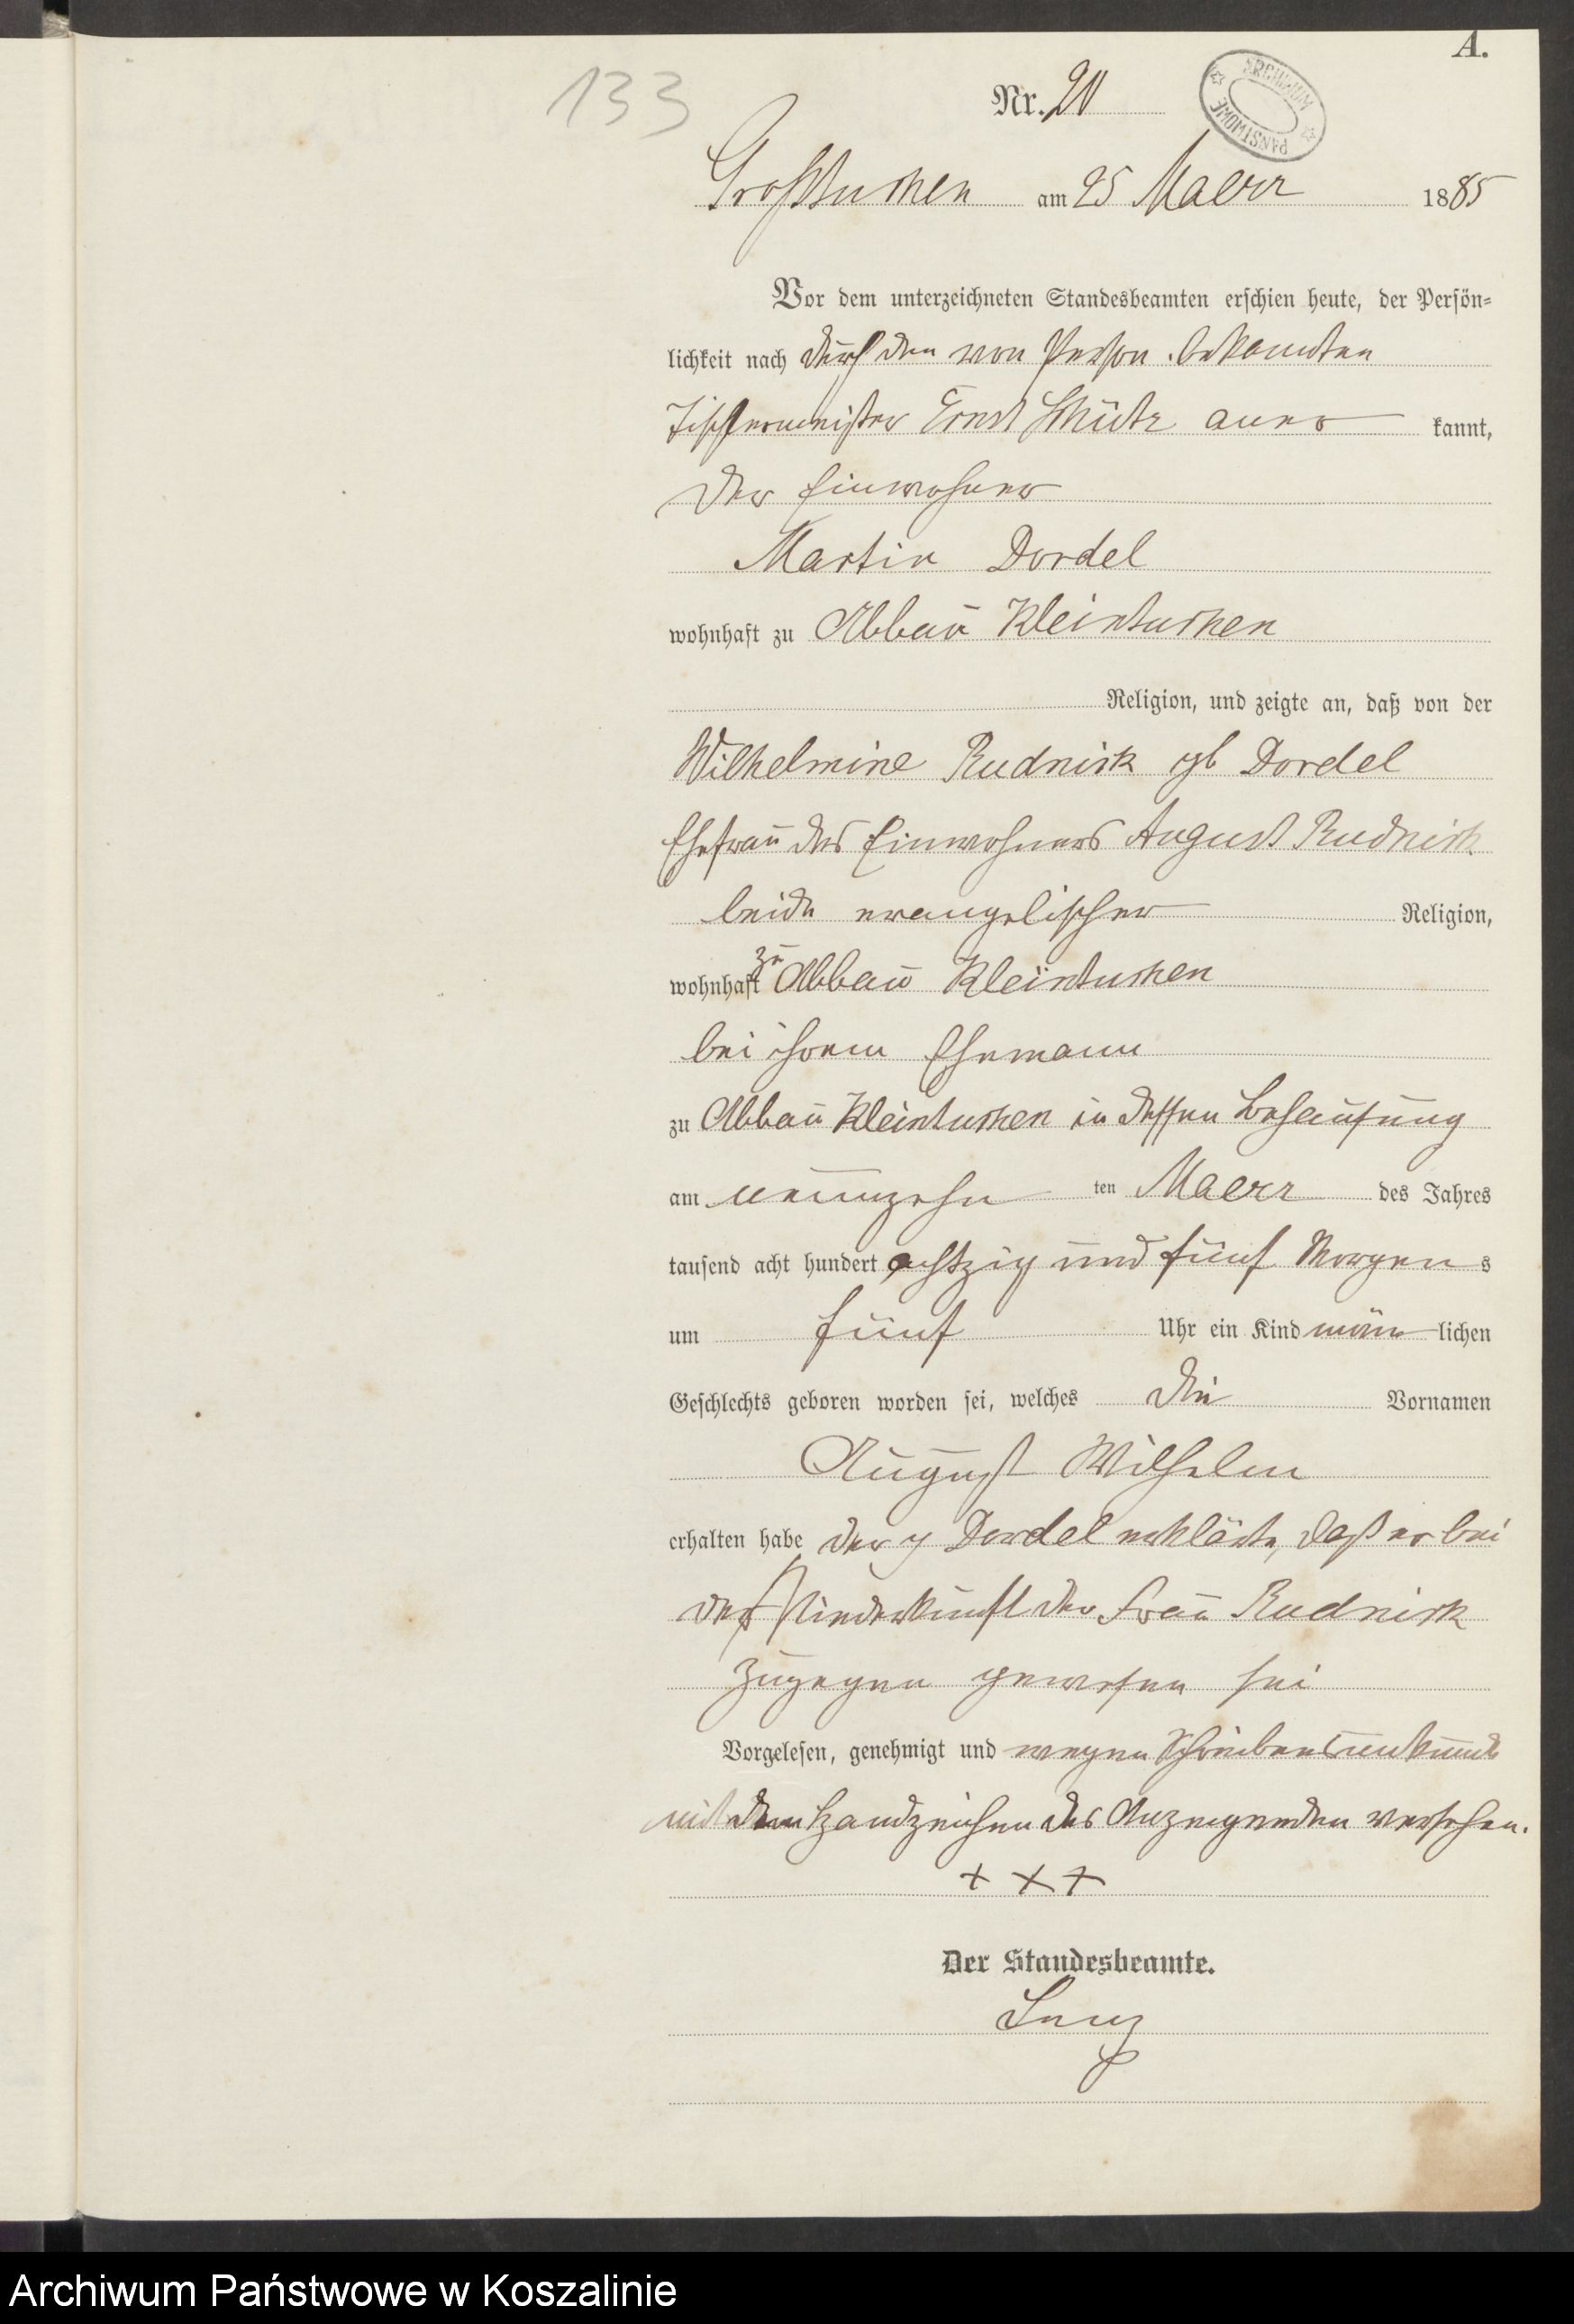 A.
133
Nr. 20
ARCHIWUM PAŃSTWOWE
Großtuchen am 25 Maerz 1885
Vor dem unterzeichneten Standesbeamten erschien heute, der Persön-
lichkeit nach durch den von Person bekannten
Tischlermeister Ernst Schütz aner kannt,
der Einwohner
Martin Dordel
wohnhaft zu Abbau Kleintuchen
Religion, und zeigte an, daß von der
Wilhelmine Rudnick gb Dordel
Ehefrau des Einwohners August Rudnick
beide evangelischer Religion,
wohnhaft zu Abbau Kleintuchen
bei ihrem Ehemann
zu Abbau Kleintuchen in dessen Behausung
am neunzehn ten Maerz des Jahres
tausend acht hundert achtzig und fünf Morgens
um fünf Uhr ein Kind männlichen
Geschlechts geboren worden sei, welches die Vornamen
August Wilhelm
erhalten habe der p Dordel erklärte, daß er bei
der Niederkunft der Frau Rudnick
zugegen gewesen sei
Vorgelesen, genehmigt und wegen Schreibensunkunde
mit dem Handzeichen des Anzeigenden versehen.
+ + +
Der Standesbeamte.
Archiwum Państwowe w Koszalinie